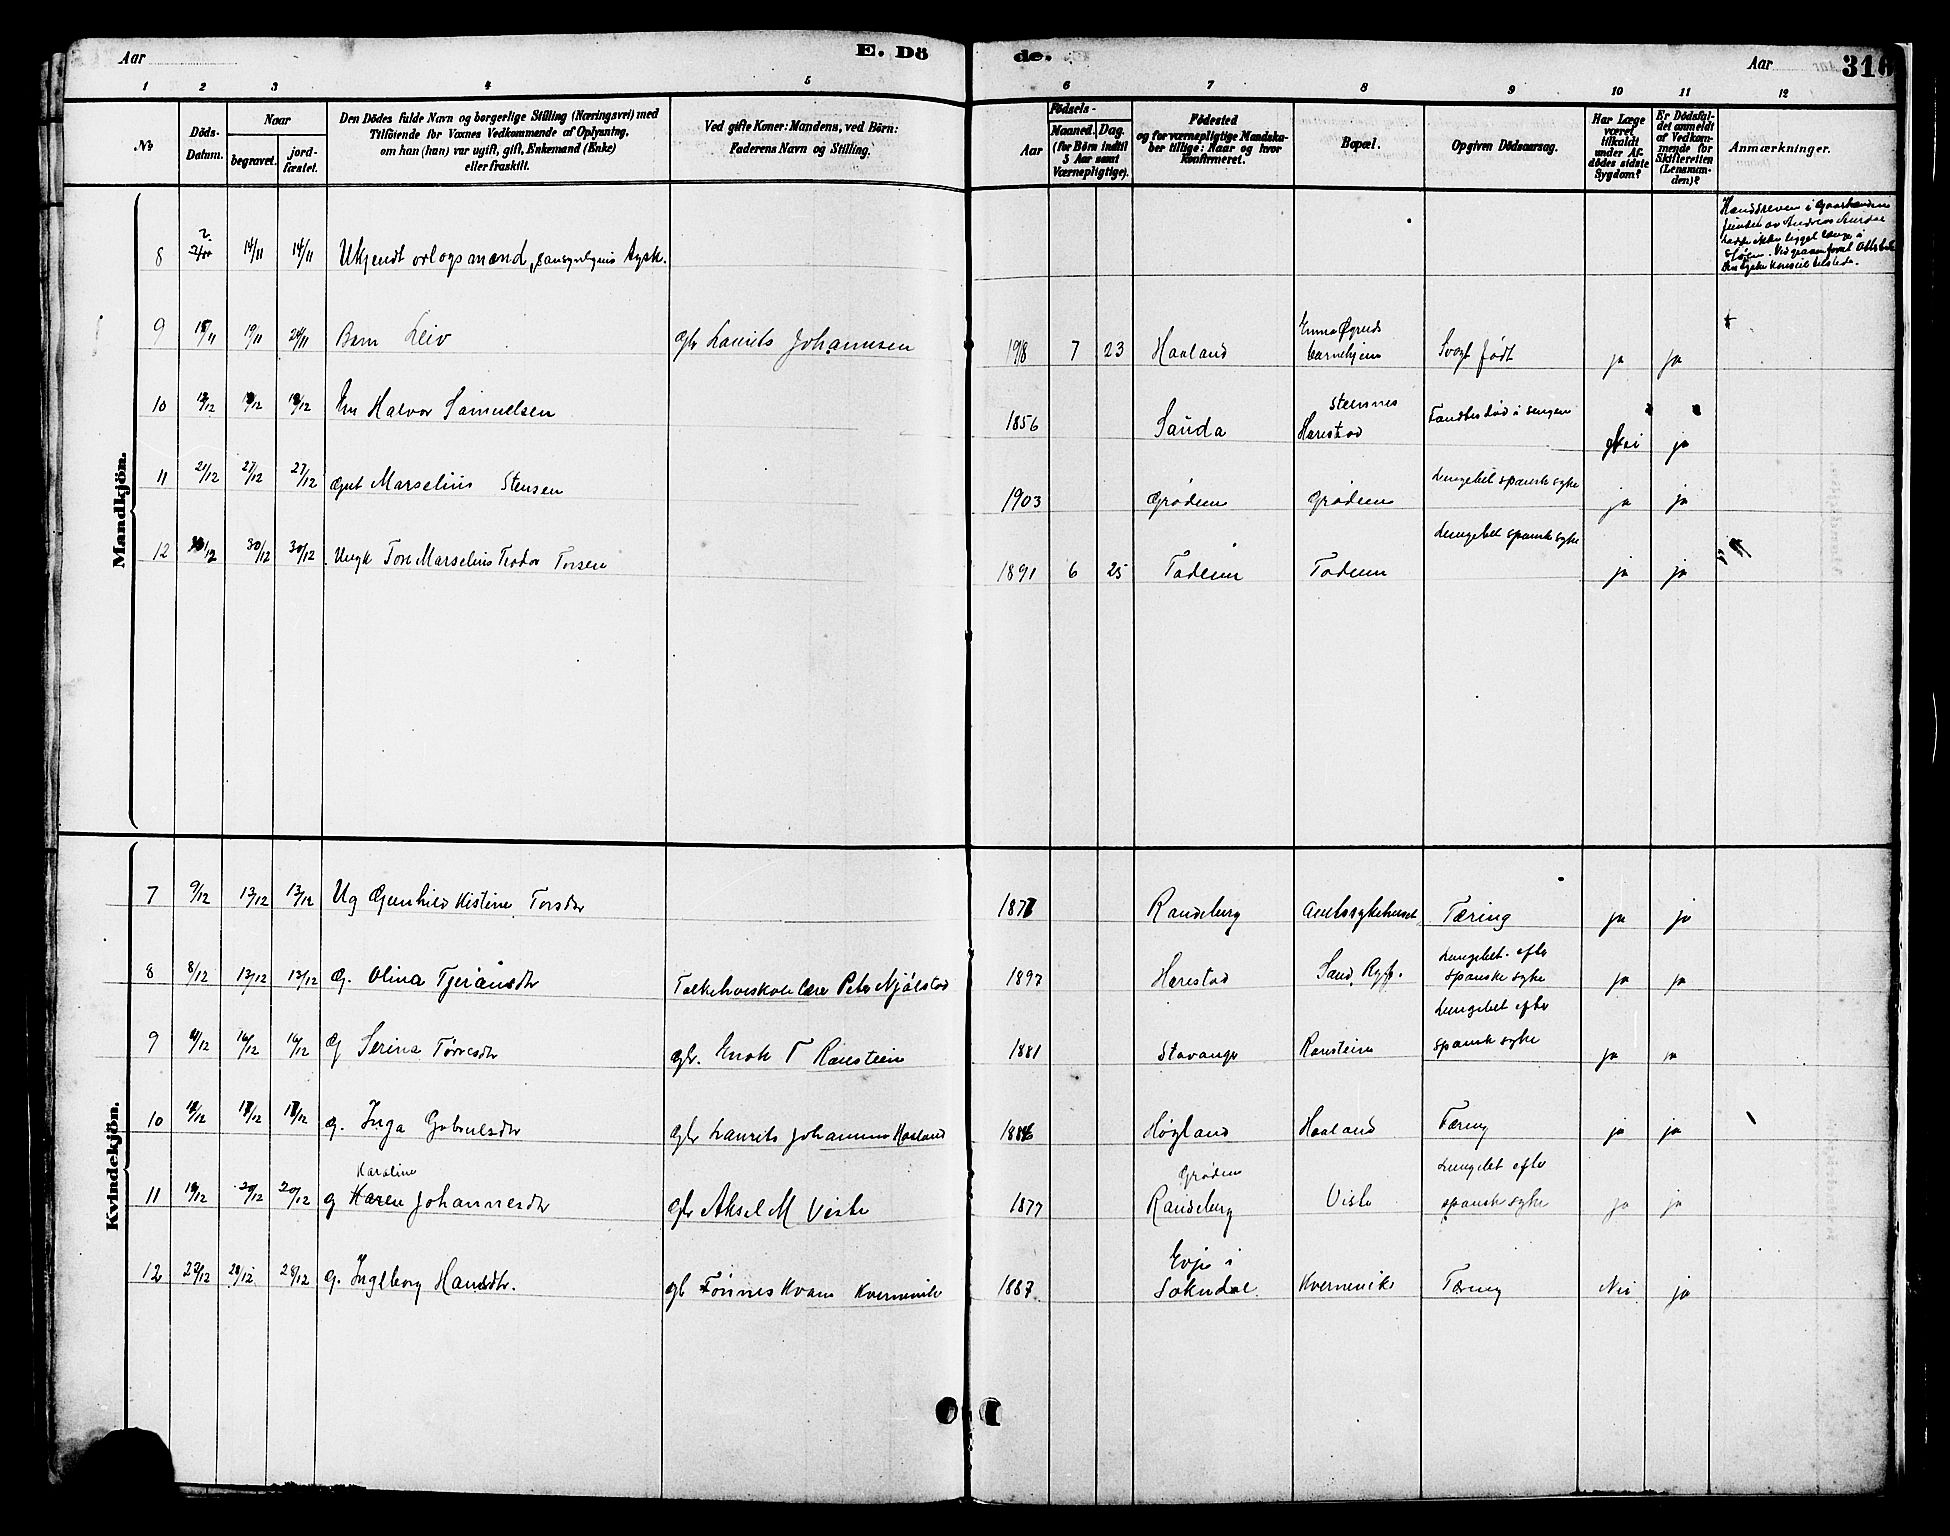 Aar
E. Dö
de.
Aar
316
1 2 3 4 5 6 7 8 9 10 11 12
No
Döds-Datum.
Naar
begravet.
jord-fæstet.
Den Dödes fulde Navn og borgerlige Stilling (Næringsvei) med
Tilföiende for Voxnes Vedkommende af Oplysning,
om han (hun) var ugift, gift, Enkemand (Enke)
eller fraskilt.
Ved gifte Koner: Mandens, ved Börn:
Faderens Navn og Stilling.
Födsels-
Aar
Maaned. Dag.
(for Börn indtil
5 Aar samt
Værnepligtige).
Födested
og for værnepligtige Mandska-
ber tillige: Naar og hvor
Konfirmeret.
Bopæl.
Opgiven Dödsaarsag.
Har Læge
været
tilkaldt
under Af-
dödes sidste
Sygdom?
Er Dödsfal-
det anmeldt
af Vedkom-
mende for
Skifteretten
(Lensman-
den)?
Anmærkninger.
Mandkjön.
8 14/11 14/11 Ukjendt orlogsmand, sansynligvis tysk.
9 19/11 24/11 Barn Leiv Gbr Laurits Johannsen 1918 7 23 Haaland barnehjem Svagt født ja ja
10 Em Halvor Samuelsen 1856 Sauda Stensnes Harestad Fandtes død i sengen nei ja
11 21/12 27/12 27/12 Gut Marselius Stensen 1903 Grødem Grødem Lungebet spansk syke ja ja
12 30/12 30/12 Ungk Tore Marselius Teodor Torsen 1891 6 25 Todem Todem Lungebet spansk syke ja ja
Kvindekjön.
7 9/12 13/12 13/12 Ug Gunhild Kistine Torsdtr 1877 Randeberg Amtssykehuset Tæring ja ja
8 8/12 13/12 13/12 G. Olina Tjeransdtr Folkehøiskole lærer Peter Njølstad 1897 Harestad Sand, Ryf. Lungebet. efter spanske syke ja ja
9 16/12 16/12 G Serina Tørresdtr Gbr. Enok T Raustein 1881 Stavanger Raustein Lungebet efter spansk syke ja ja
10 17/12 17/12 G. Inga Gabrielsdtr Gbr Laurits Johannsen Haaland 1886 Høgland Haaland Tæring ja ja
11 20/12 20/12 G Karen Karoline Johannesdtr Gbr Aksel M Viste 1877 Grødem Randeberg Viste Lungebet efter spansk syke ja ja
12 22/12 28/12 28/12 G. Ingeborg Hansdtr. Gb Tønnes Kvam Kvernevik 1887 Evje i Sokndal Kvernevik Tæring Nei ja